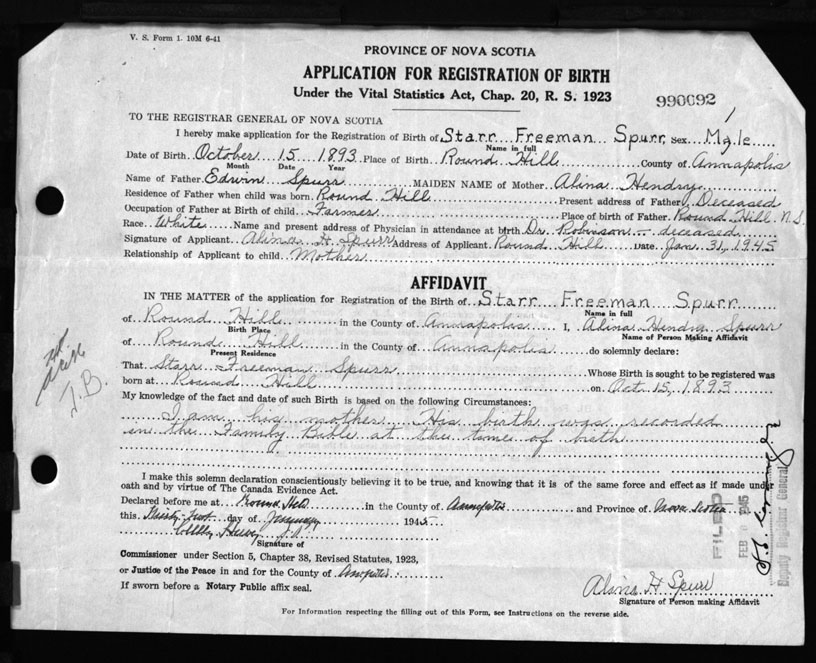 V. S. Form 1. 10M 6-41
PROVINCE OF NOVA SCOTIA
APPLICATION FOR REGISTRATION OF BIRTH
Under the Vital Statistics Act, Chap. 20, R. S. 1923
990692
TO THE REGISTRAR GENERAL OF NOVA SCOTIA
I hereby make application for the Registration of Birth of Starr Freeman Spurr Sex Male
Name in full
Date of Birth October 15 1893 Place of Birth Round Hill County of Annapolis
Month Date Year
Name of Father Edwin Spurr MAIDEN NAME of Mother Alina Hendry
Residence of Father when child was born Round Hill Present address of Father Deceased
Occupation of Father at Birth of child Farmer Place of birth of Father Round Hill N.S.
Race White Name and present address of Physician in attendance at birth Dr. Robinson - deceased
Signature of Applicant Alina H Spurr Address of Applicant Round Hill Date Jan 31, 1945
Relationship of Applicant to child Mother
AFFIDAVIT
IN THE MATTER of the application for Registration of the Birth of Starr Freeman Spurr
Name in full
of Round Hill in the County of Annapolis I, Alina Hendry Spurr
Birth Place Name of Person Making Affidavit
of Round Hill in the County of Annapolis do solemnly declare:
Present Residence
That Starr Freeman Spurr Whose Birth is sought to be registered was
born at Round Hill on Oct 15, 1893
My knowledge of the fact and date of such Birth is based on the following Circumstances:
I am his mother His birth was recorded
in the Family Bible at the time of birth
I make this solemn declaration conscientiously believing it to be true, and knowing that it is of the same force and effect as if made under
oath and by virtue of The Canada Evidence Act.
Declared before me at Round Hill in the County of Annapolis and Province of Nova Scotia
this Thirty-first day of January 1945
Signature of
Commissioner under Section 5, Chapter 38, Revised Statutes, 1923,
or Justice of the Peace in and for the County of Annapolis
If sworn before a Notary Public affix seal.
Alina H Spurr
Signature of Person making Affidavit
For Information respecting the filling out of this Form, see Instructions on the reverse side.
J.B.
FILED
FEB 1945
Deputy Registrar General